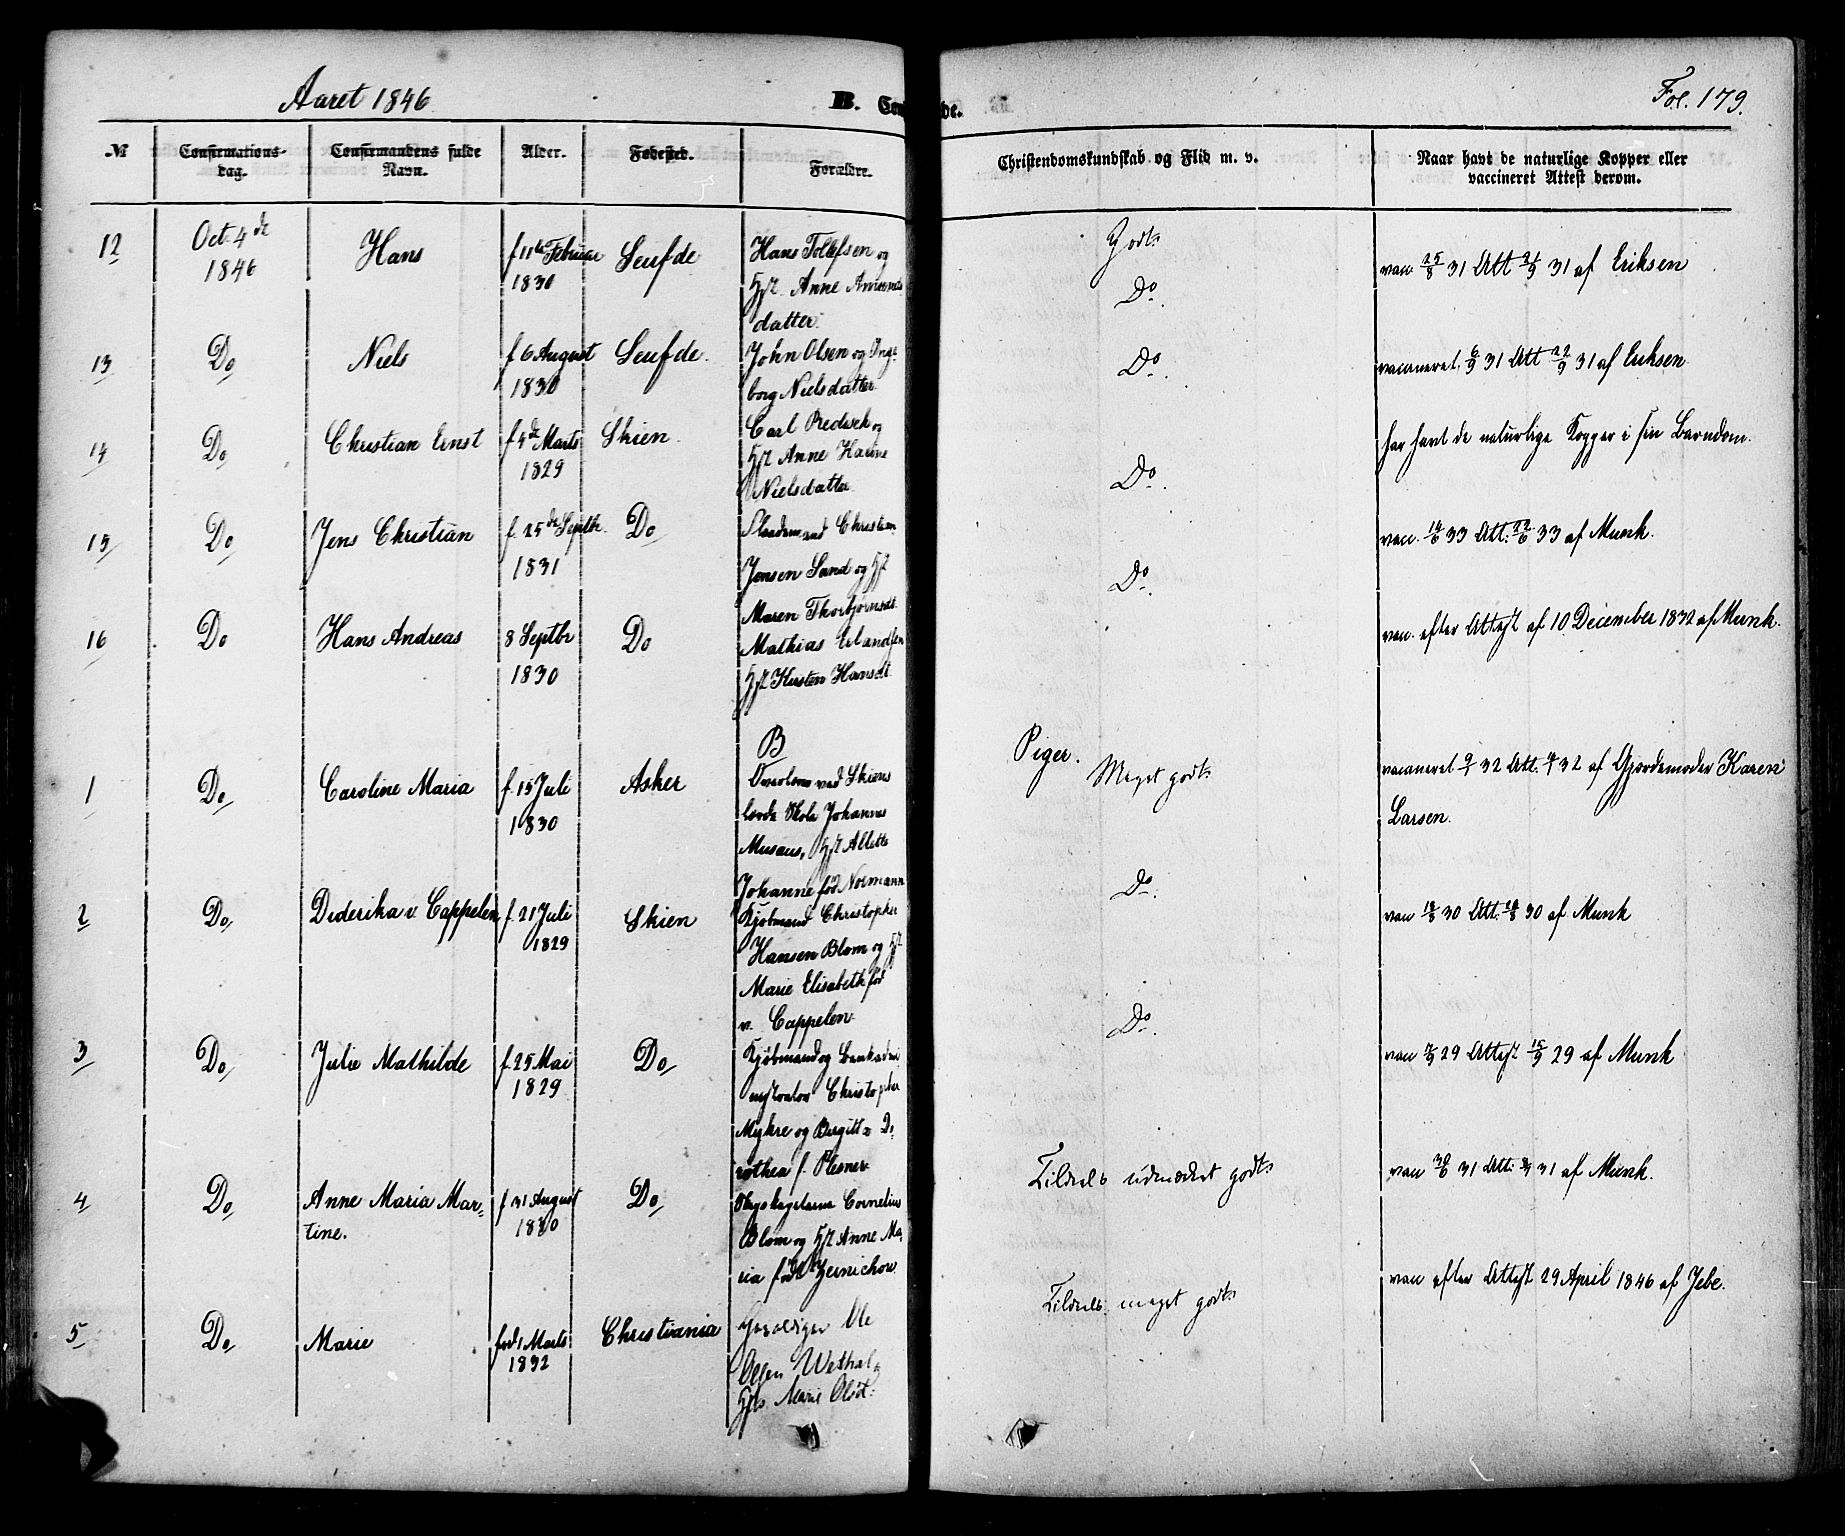 Aaret 1846
B.
Fol. 179.
№
Confirmations-
dag.
Confirmandens fulde
Navn.
Alder.
Fødested.
Forældre.
Christendomskundskab og Flid m. v.
Naar havt de naturlige Kopper eller
vaccineret Attest derom.
12
Oct. 4de
1846
Hans
f 11te Februar
1830
Hans Tollefsen og
Hst. Anne
datter.
Godt
vac. 25/8 31 Att 21/9 31 af Eriksen
Do
13
Do
Niels
f 6 August
1830
John Olsen og Inge
borg Nielsdatter
Do
6/9 31 Att 22/9 31 af Eriksen
14
Do
Christian Ernst
f 4de Marts
1829
Skien.
Carl
Hst Anne
Nielsdatter
Do
har havt de naturlige Kopper i sin Barndom.
15
Do
Jens Christian
f. 25de Septbr.
1831
Do
Christian
Jensen Sand og Hst
Maren
Do
vac. 33 Att. 33 af Munk.
16
Do
Hans Andreas
8 Septbr
1830
Do
Mathias Erlandsen
Hst Kirsten Hansdt
vac. efter Attest af 10 December 1832 af Munk.
B
Piger.
1
Do
Caroline Maria
f. 15 Juli
1830
Asker
ved Skiens
lærde Skole Johannes
Musæus, Hst Allette
Johanne fød Normann
Meget godt
32 Att. 32 af Gjordemoder Karen
Larsen.
2
Do
Diderika v. Cappelen
f. 21 Juli
1829
Skien
Kjøbmand Christopher
Hansen Blom og Hst
Marie Elisabeth fød
v. Cappelen
Do
vac 30 Att. 30 af Munk
3
Do
Julie Mathilde
f. 25 Mai
1829
Do
Kjøbmand og Bankadmi
nistrator Christopher
Myhre og Birgitte Do
rothea f. Plesner
Do
vac 29 Attest 15/9 29 af Munk
4
Do
Anne Maria Mar-
tine.
f 31 August
1830
Do
Cornelius
Blom og Hst Anne Ma
ria født
Tildeels udmærket godt
vac 30/6 31 Att. 31 af Munk.
5
Do
Marie
født 1 Marts
1832
Christiania
Ole
Olsen Wethal
Hst. Marie Olsdt.
Tildeels meget godt
vac efter Attest 29 April 1846 af Jebe.